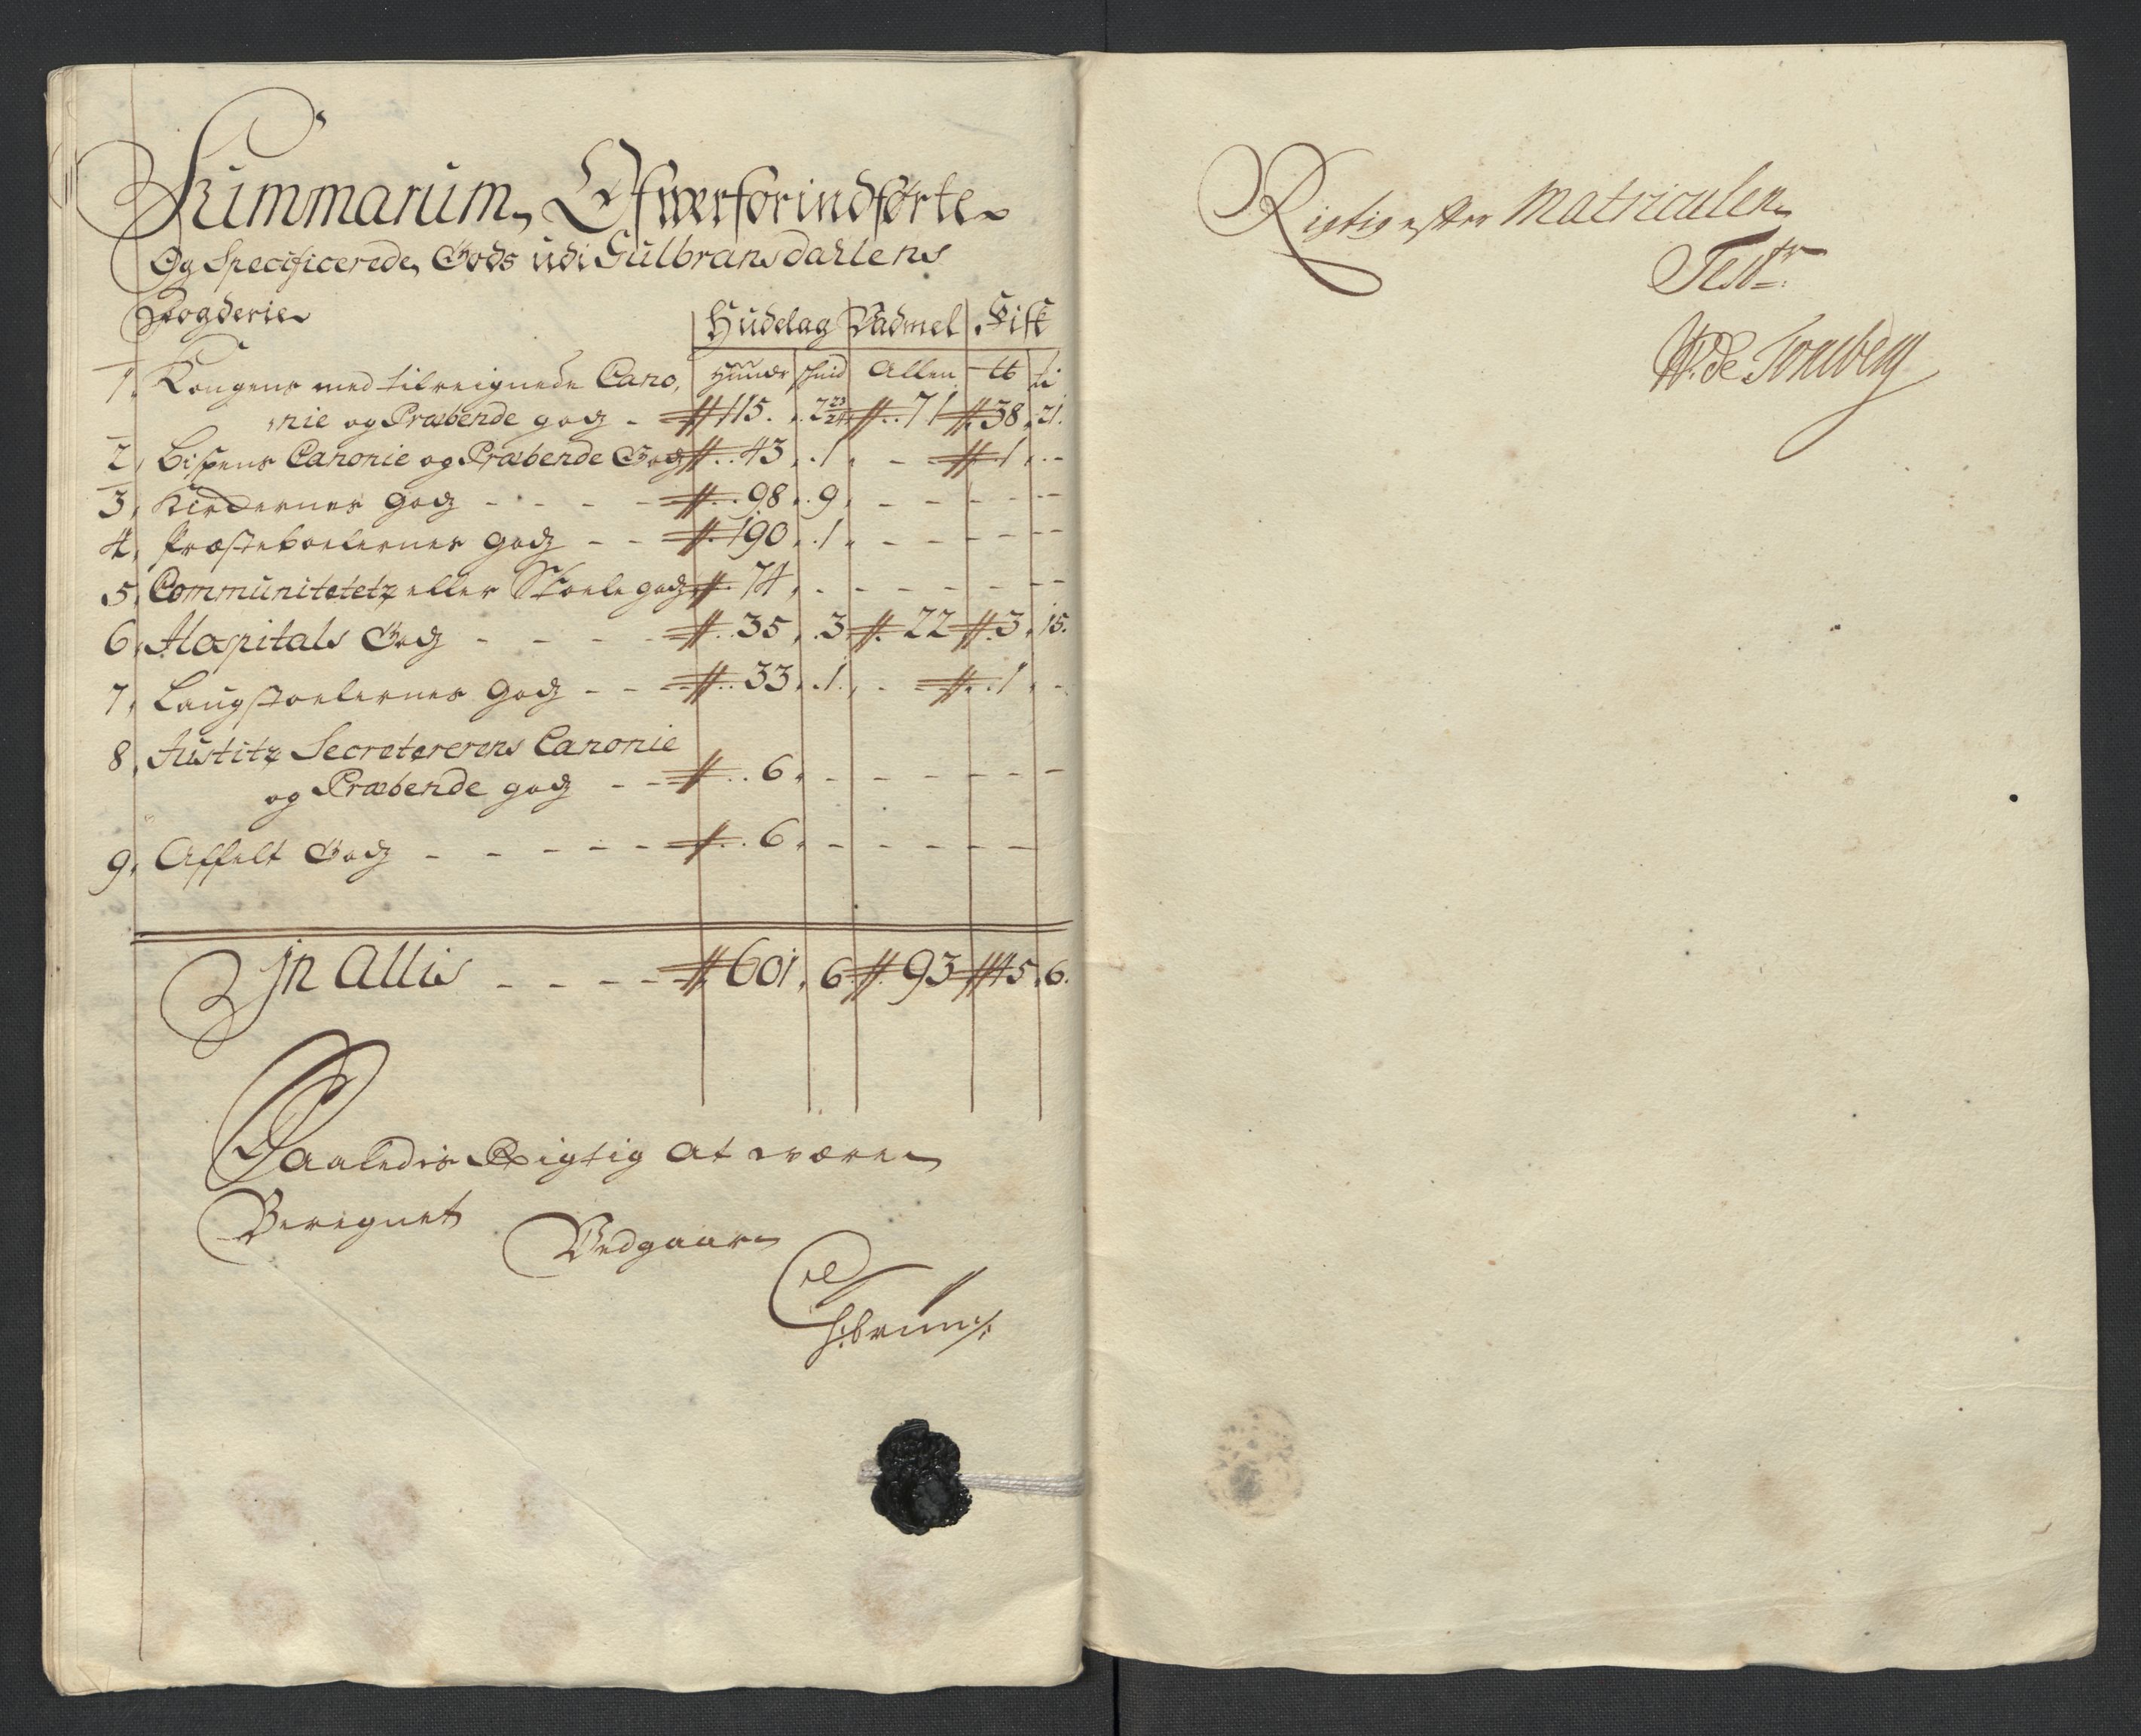 Summarum, Ofwerforindførte
Og Specificerede, Gods udi Gulbransdahlens
Fogderie
Hudelag Vadmel Fisk
Huuder Skind Allen ℔ li
1. Kongens med tilreignede Cano,
nie og Præbende godz - # 115. 2 23/24 # 71 # 38. 21.
2, Bispens Canonie og Præbende Godz # 43. 1. - - # 1. -
3, Kirckernes godz - - - - # 98. 9. - - - - -
4, Præsteboelernes godz - - # 190. 1. - - - - -
5, Communitetetz eller Skoele godz # 74. - - - - - -
6, Hospitals Godz - - - - # 35. 3. # 22 # 3. 15.
7, Laugstoelernes Godz - - # 33. 1. - # 1. -
8, Justitz Secreterens Canonie
og Præbende godz - - # 6. - - - - - -
9, Affelt Godz - - - - - # 6. - - - - -
In Allis - - - - # 601. 6 # 93 # 45. 6.
Saaledes Rigtig at være
Beregnet
Vedgaar
Rigtig efter Matriculen
Test: